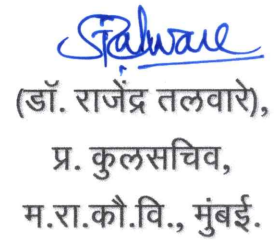 (डॉ. राजेंद्र तलवारे),
प्र. कुलसचिव,
म.रा.कौ.वि., मुंबई.